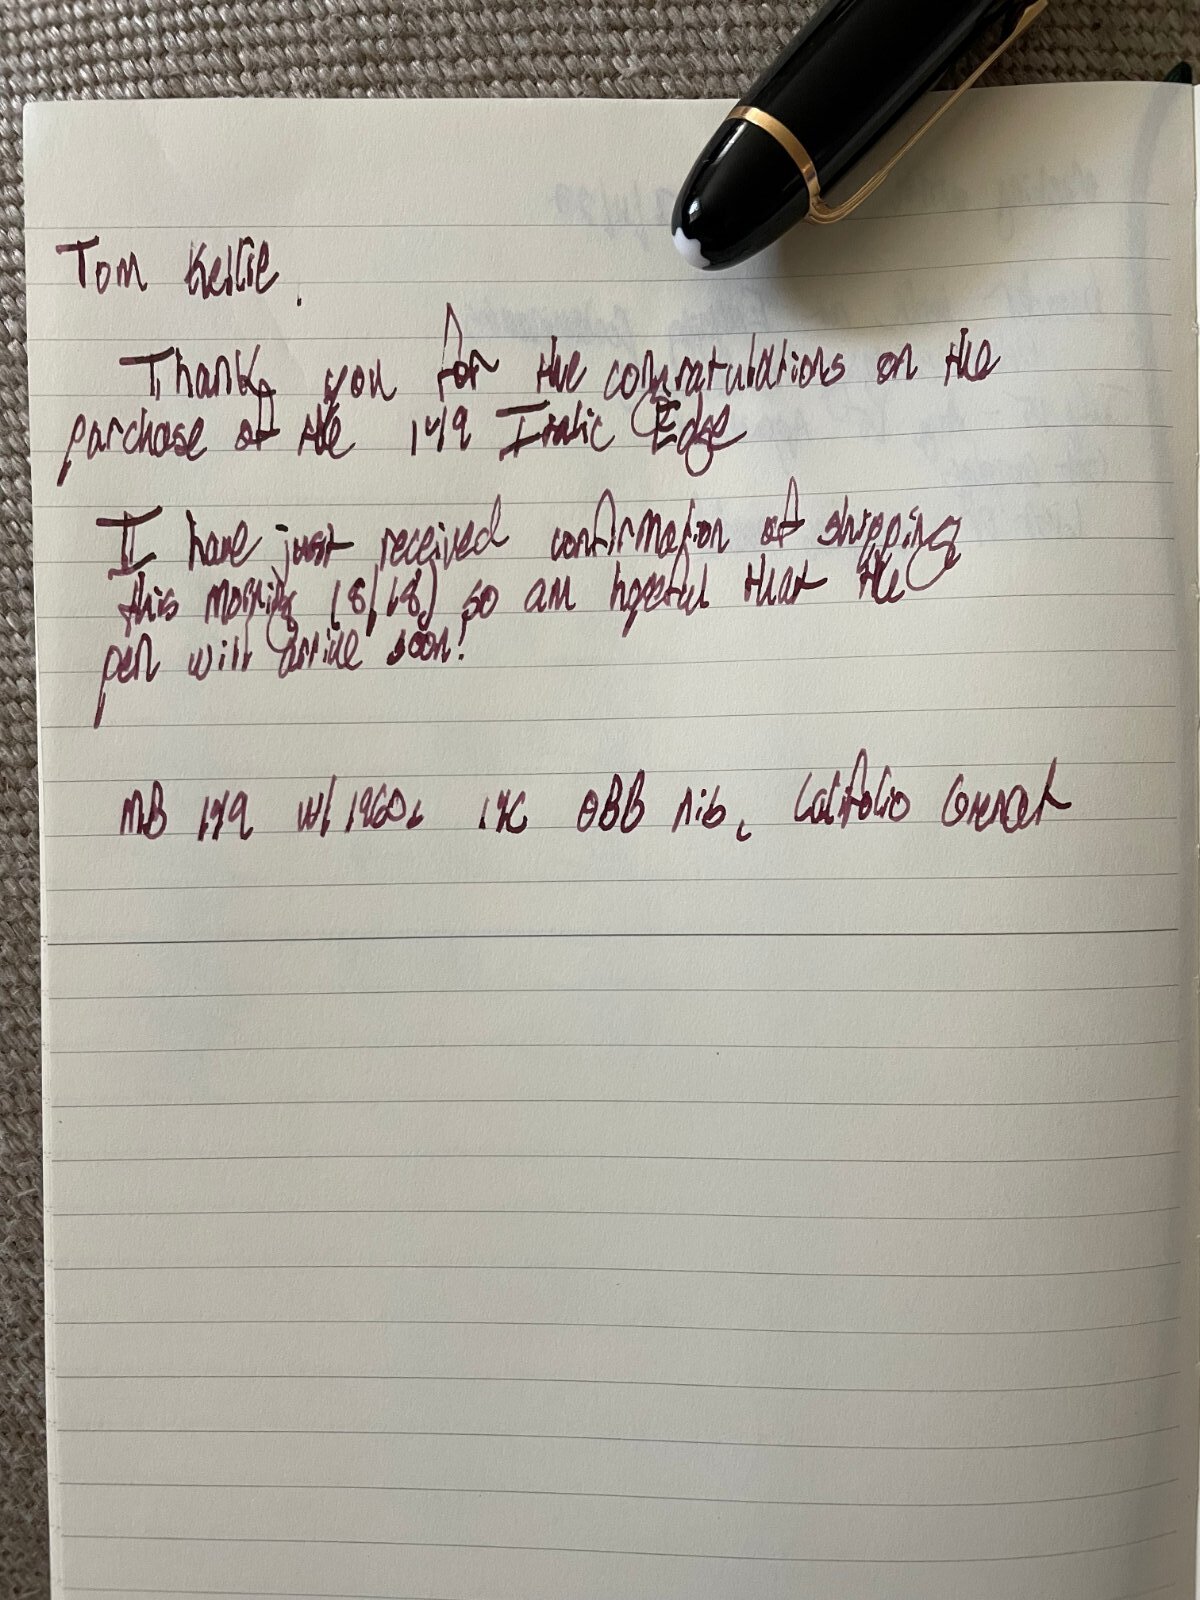 Tom Kellie,
Thank you for the congratulations on the
purchase of the 149 Italic Edge
I have just received confirmation of shipping
this morning (8/18) so am hopeful that the
pen will arrive soon!
MB 149 w/ 1960s 14C OBB nib, Califolio Grenat